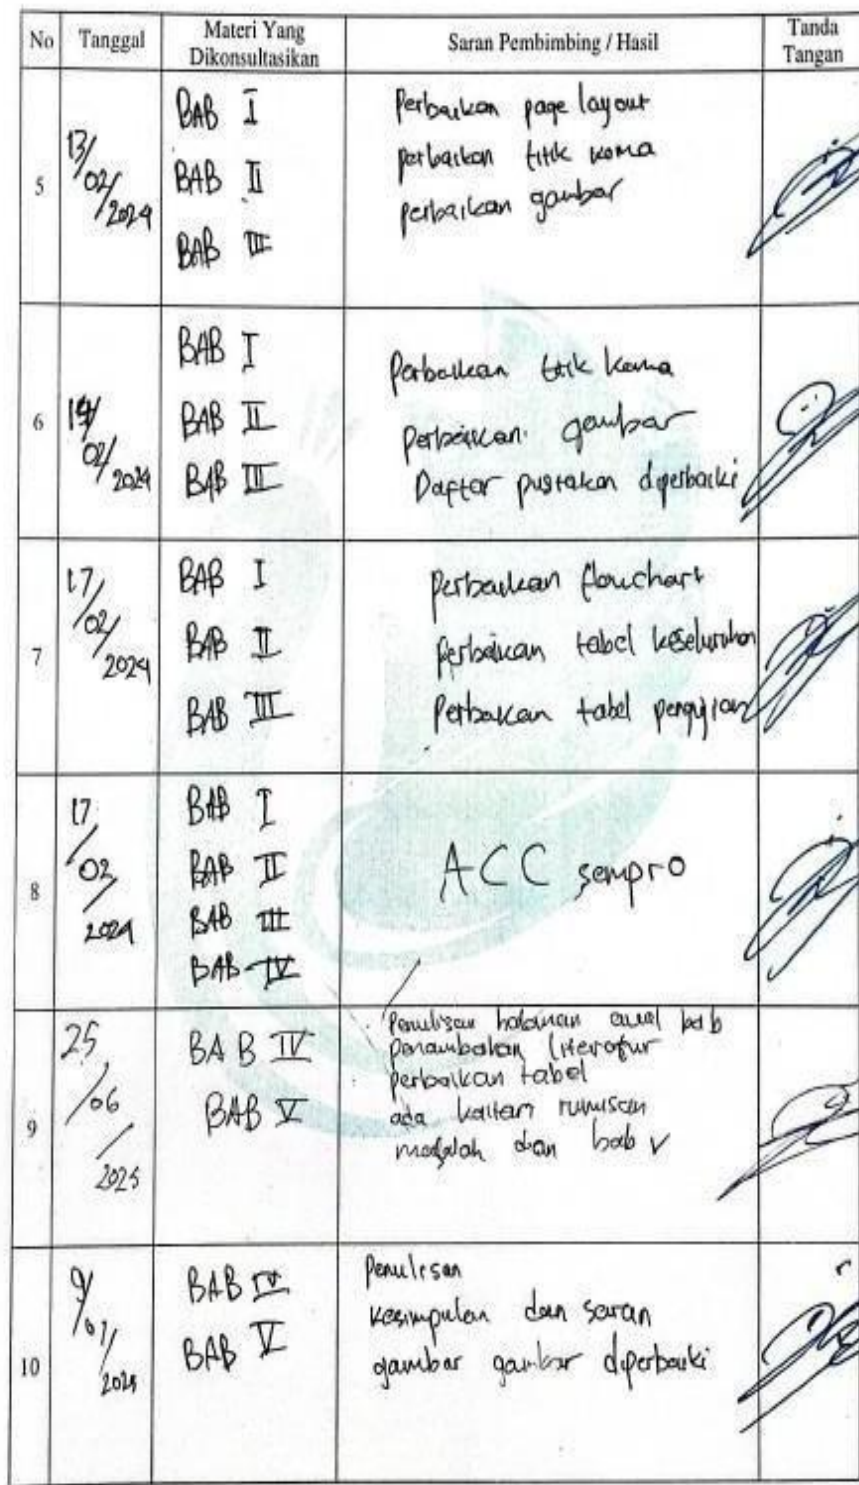 No Tanggal Materi Yang Dikonsultasikan Saran Pembimbing / Hasil Tanda Tangan
5
13/02/2024
BAB I
BAB II
BAB III
Perbaikan page layout
perbaikan titik koma
perbaikan gambar
6
02/2024
BAB I
BAB II
BAB III
Perbaikan titik koma
Perbaikan gambar
Daftar pustakan diperbaiki
7
17/02/2024
BAB I
BAB II
BAB III
Perbaikan flowchart
Perbaikan tabel keseluruhan
Perbaikan tabel pengujian
8
17/02/2024
BAB I
BAB II
BAB III
BAB IV
ACC sempro
9
25/06/2025
BAB IV
BAB V
Penulisan halaman awal bab
penambahan literatur
perbaikan tabel
ada kaitan rumusan
masalah dan bab V
10
BAB IV
BAB V
Penulisan
Kesimpulan dan saran
gambar gambar diperbaiki